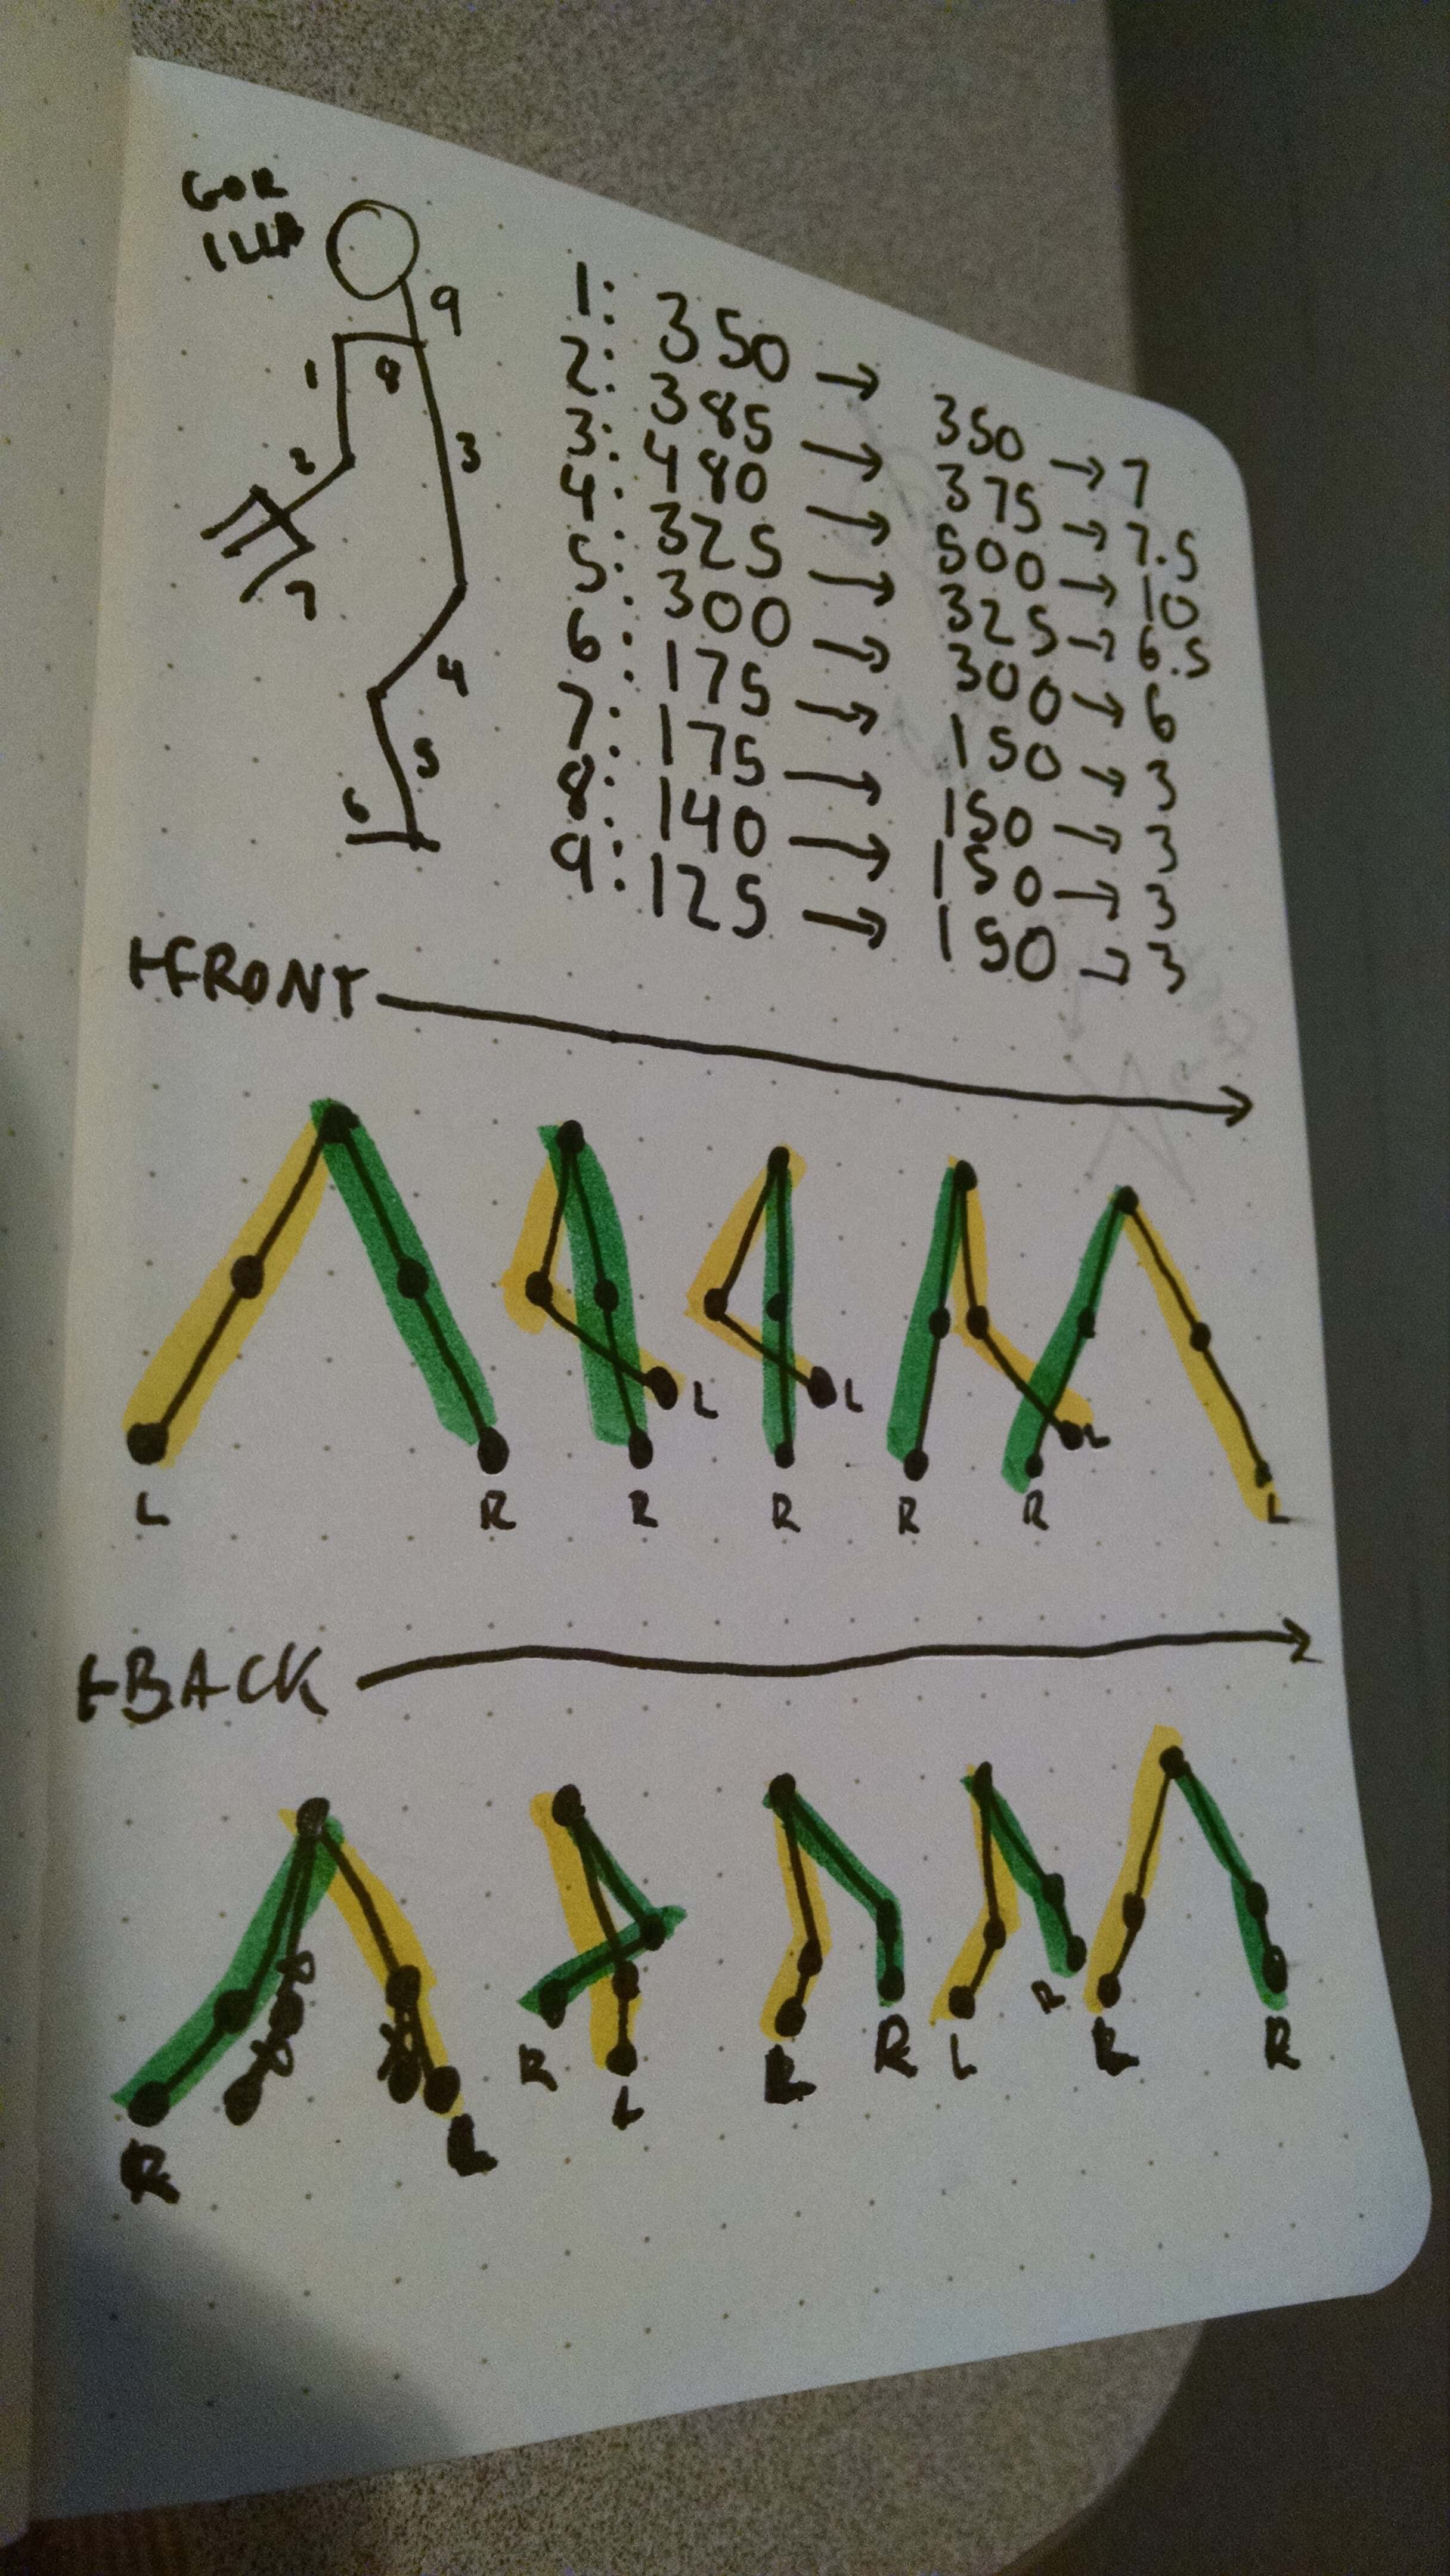 GOR
ILLA
9
1
8
2
3
7
4
5
6
1: 350 → 350 → 7
2: 385 → 375 → 7.5
3: 480 → 500 → 10
4: 325 → 325 → 6.5
5: 300 → 300 → 6
6: 175 → 150 → 3
7: 175 → 150 → 3
8: 140 → 150 → 3
9: 125 → 150 → 3
FRONT
L L L
L R R R R R L
BACK
R L R L L R L R L R